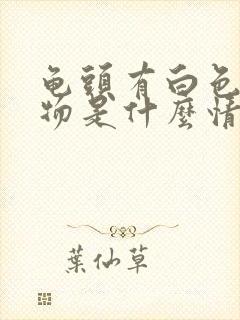 龟頭有白色
物是什麼情
葉仙草